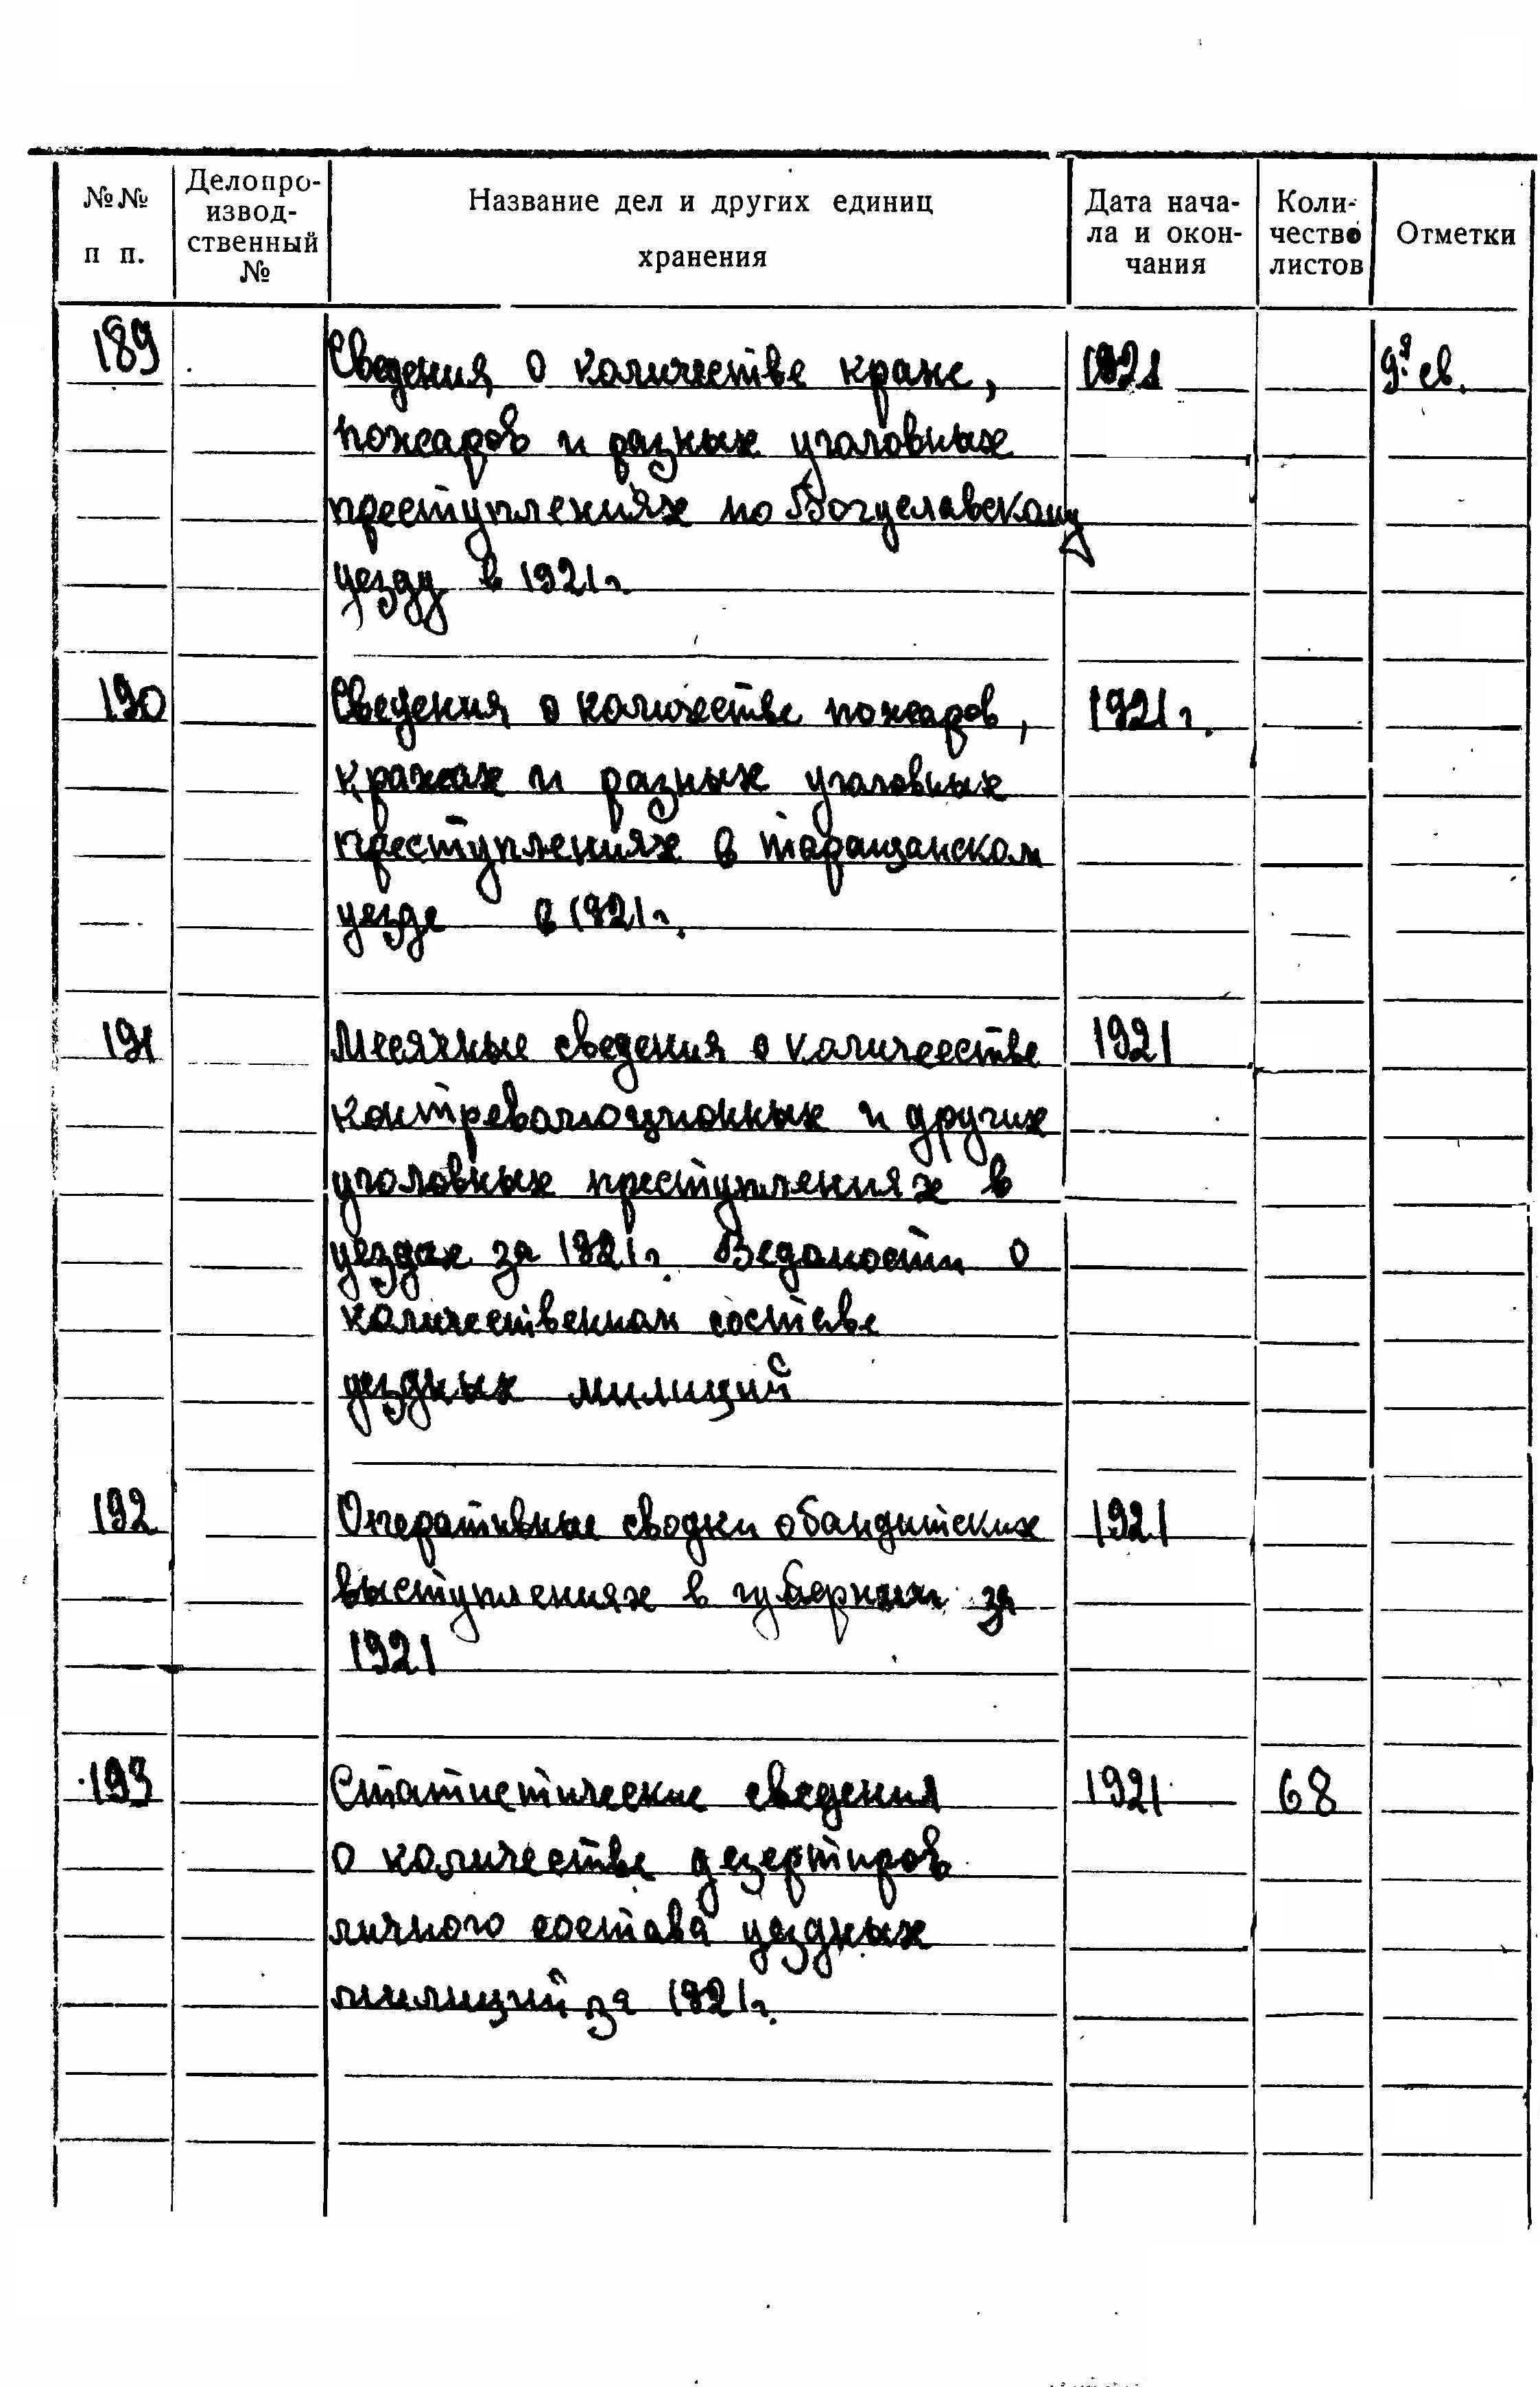 №№ п п.
Делопро-
извод-
ственный
№
Название дел и других единиц
хранения
Дата нача-
ла и окон-
чания
Коли-
чество
листов
Отметки
189 Сведения о количестве краж, 1921
пожаров и разных уголовных
преступлениях по Богуславскому
уезду в 1921 г.
190 Сведения о количестве пожаров, 1921 г.
кражах и разных уголовных
преступлениях в Таращанском
уезде в 1921 г.
191 Месячные сведения о количеестве 1921
контреволюционных и других
уголовных преступлениях в
уездах за 1921 г. Ведомости о
количественном составе
уездных милиций
192 Оперативные сводки о бандитских 1921
выступлениях в губернии за
1921
193 Статистические сведения 1921 68
о количестве дезертиров
личного состава уездных
милиций за 1921 г.